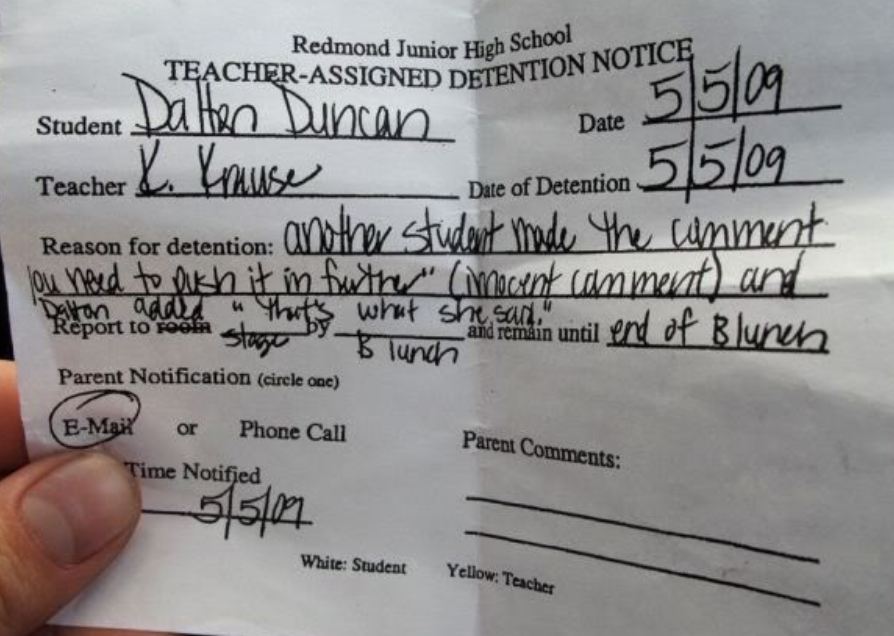 Redmond Junior High School
TEACHER-ASSIGNED DETENTION NOTICE
Student Dalton Duncan Date 5/5/09
Teacher K. Krause Date of Detention 5/5/09
Reason for detention: another student made the comment
you need to push it in further" (innocent comment) and
Dalton added "that's what she said."
Report to room stage by B lunch and remain until end of B lunch
Parent Notification (circle one)
E-Mail or Phone Call
Parent Comments:
Time Notified
5/5/09
White: Student Yellow: Teacher